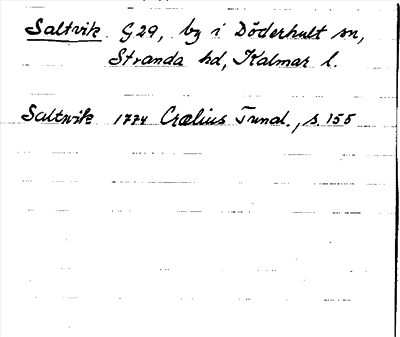 Saltvik G29, by i Döderhult sn,
Stranda hd, Kalmar l.
Saltwik 1774 Crælius Tunal., s. 155